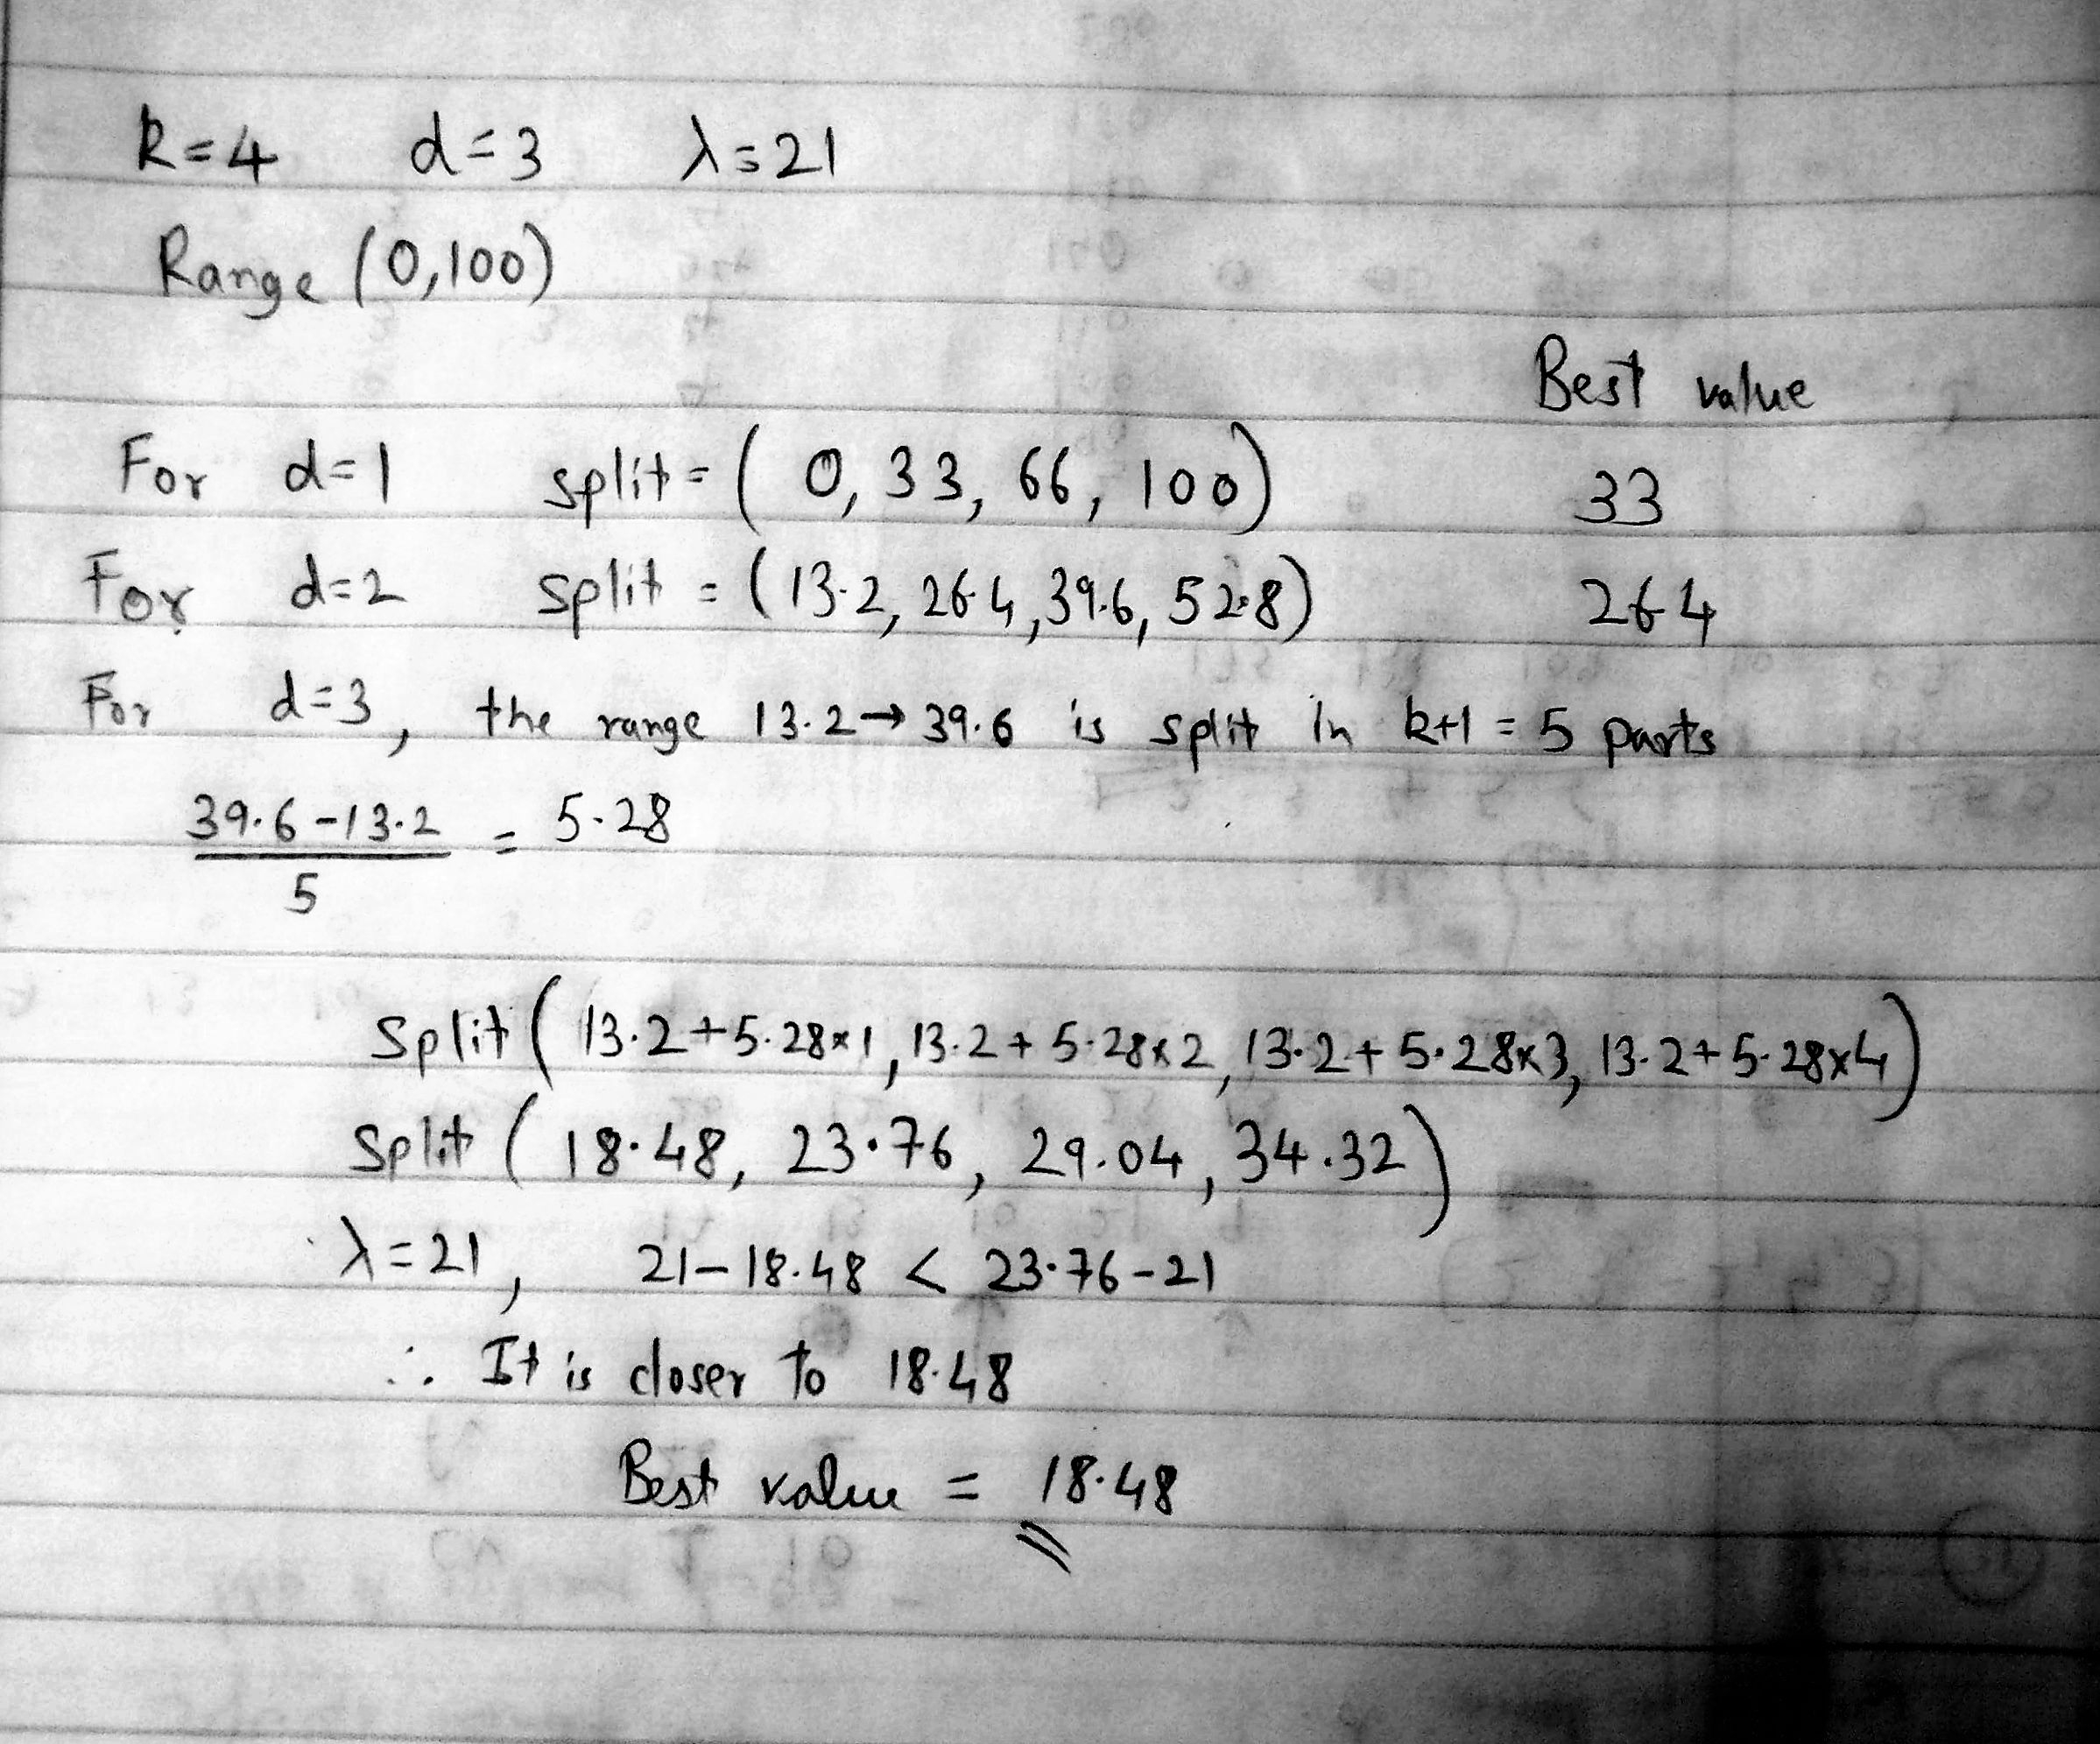 k=4 d=3 λ=21
Range (0,100)
Best value
For d=1 split = ( 0, 33, 66, 100) 33
For d=2 split = (13.2, 26.4, 39.6, 52.8) 26.4
For d=3, the range 13.2→39.6 is split in k+1 = 5 parts
39.6-13.2 = 5.28
5
Split ( 13.2+5.28×1, 13.2+5.28×2, 13.2+5.28×3, 13.2+5.28×4)
Split ( 18.48, 23.76, 29.04, 34.32)
λ=21, 21-18.48 < 23.76-21
∴ It is closer to 18.48
Best value = 18.48